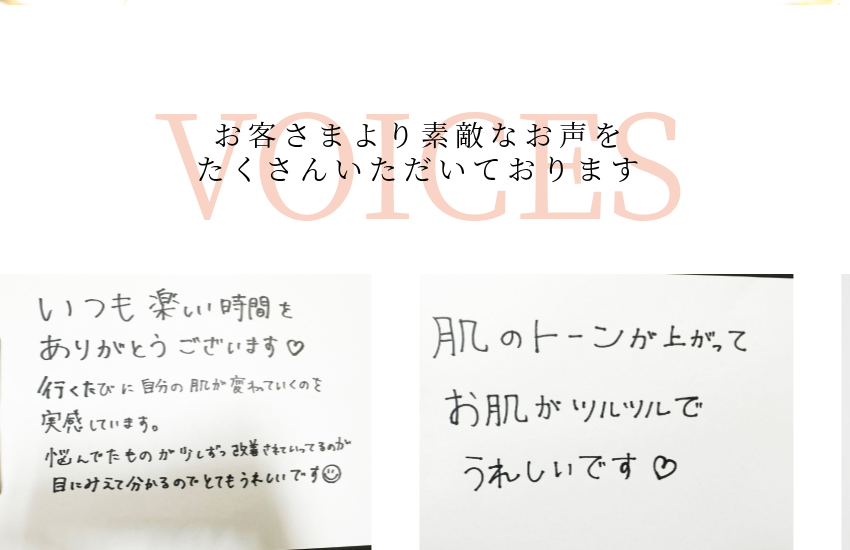 VOICES
お客さまより素敵なお声を
たくさんいただいております
いつも楽しい時間を
ありがとうございます♡
行くたびに自分の肌が変わっていくのを
実感しています。
悩んでたものが少しずつ改善されていってるのが
目にみえて分かるのでとてもうれしいです☺
肌のトーンが上がって
お肌がツルツルで
うれしいです♡